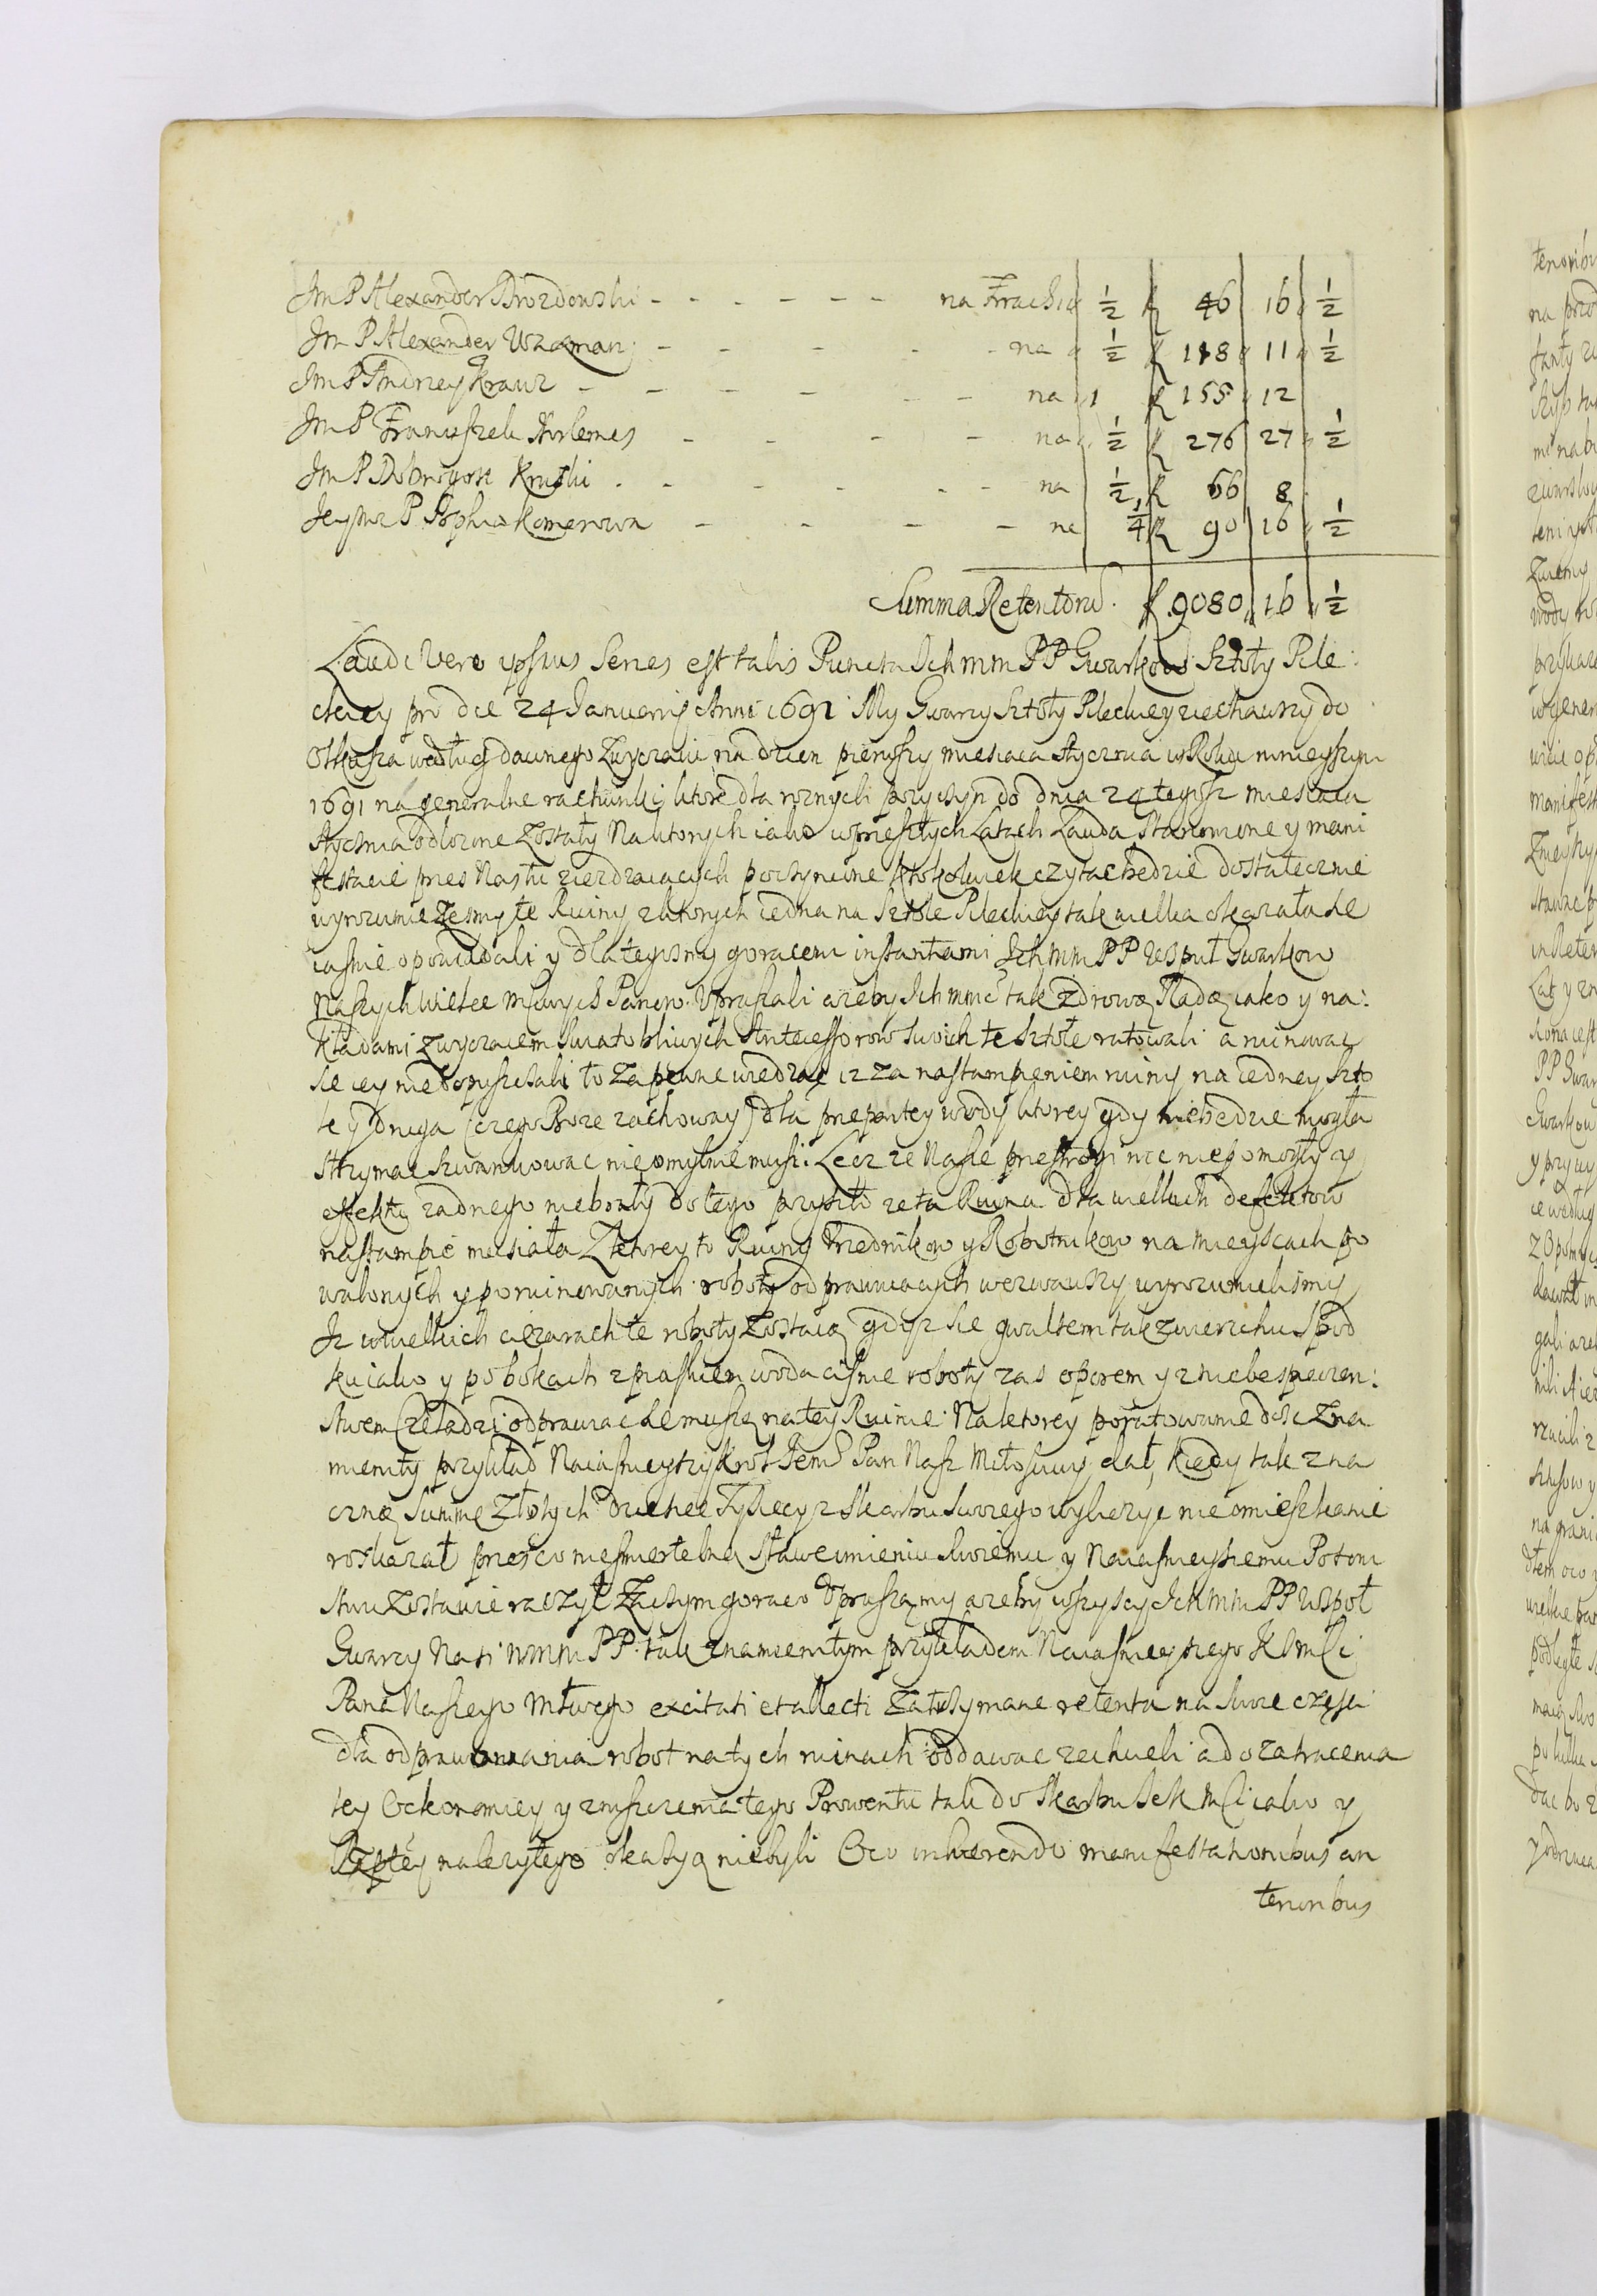 Jm P Alexander Drozdowski - - - - - - na Fracht ½ f 46 16 ½
Jm P Alexander Uzarman - - - - - na ½ f 118 11 ½
Jm P Andrzey Krauz - - - - - - na 1 f 155 12
Jm P Franciszek Norlemes - - - - na ½ f 276 27 ½
Jm P Dobrogost Kruski - - - - - - na ½ f 66 8
Jeymc P Sophia Komerowa - - - - na ¼ f 90 16 ½
Summa Retentow. f 9080 16 ½
Laudi Vero ipsius Series est talis Puncta Ich mm PP Gwarkow Sztoły Pile:
ckiey pro die 24 Januarij Anni 1691 My Gwarcy Sztoły Pileckiey ziechawszy do
Olkusza według dawnego Zwyczaiu na dzien pierwszy miesiaca Stycznia w Roku ninieyszym
1691 na generalne rachunki ktore dla roznych przyczyn do dnia 24 tegosz miesiaca
Stycznia odlozone Zostały Na ktorych iako w przeszłych Latach Lauda stanowione y mani
festacie przes Nas tu ziezdzaiacych poczynione ktokolwiek czytac bedzie dostatecznie
wyrozumie Zesmy te Ruiny z ktorych iedna na Sztole Pileckiey tak wielka okazała sie
iasnie opowiadali y dla tegosmy goracemi instantiami Ich mm PP Wspuł Gwarkow
Naszych Wielce Mciwych Panow Upraszali azeby Ich mmc tak Zdrową Radą iako y na:
kładami Zwyczaiem Swiatobliwych Antecessorow Swoich te Sztołe ratowali a ruinowac
sie iey niedopuszczali to Zapewne wiedząc iz za nastampieniem ruiny na iedney Szto
le y druga (czego Boze zachoway) dla prepartey wody ktorey gdy niebedzie mogła
strzymac szwankowac nieomylnie musi. Lecz ze Nasze przestrogi nic niepomogły y
effektu zadnego niebrały do tego przyszło ze ta Ruina dla wielkich defektow
nastampic musiała Z ktorey to Ruiny Urzednikow y Robotnikow na mieyscach za
walonych y poruinowanych roboty odprawuiacych wezwawszy wyrozumielismy
Iz w wielkich ciezarach te roboty Zostaią gdysz sie gwaltem tak z wierzchu Spod
ku iako y po bokach z piaskiem woda cisnie roboty zas oporem y z niebespieczen:
stwem Czeladzi odprawiac sie muszą na tey Ruinie. Na ktorey poratowanie dosc Zna
mienity przykład Naiasnieyszy Krol Jemc Pan Nasz Miłosciwy dał, kiedy tak zna
czną Summe Złotych dwiescie Tysiecy z Skarbu Swoiego wyliczyc nieomieszkanie
roskazał przes co niesmiertelną Sławe imieniu Swoiemu y Naiasnieyszemu Potom
stwu Zostawic raczył Zaczym goraco Upraszamy azeby wszyscy Ich mm PP Wspoł
Gwarcy Nasi WMM PP. tak znamienitym przykładem Naiasnieyszego K J MCi
Pana Naszego Młwego excitati et allecti Zatrzymane retenta na swoie części
dla odprawowania robot na tych ruinach oddawac zechcieli a do zatracenia
tey Oekonomiey y zniszczenia tego Prowentu tak do Skarbu J K MCi iako y
Rzptey nalezytego okazyą niebyli Oco inhaerendo manifestationibus an
terioribus